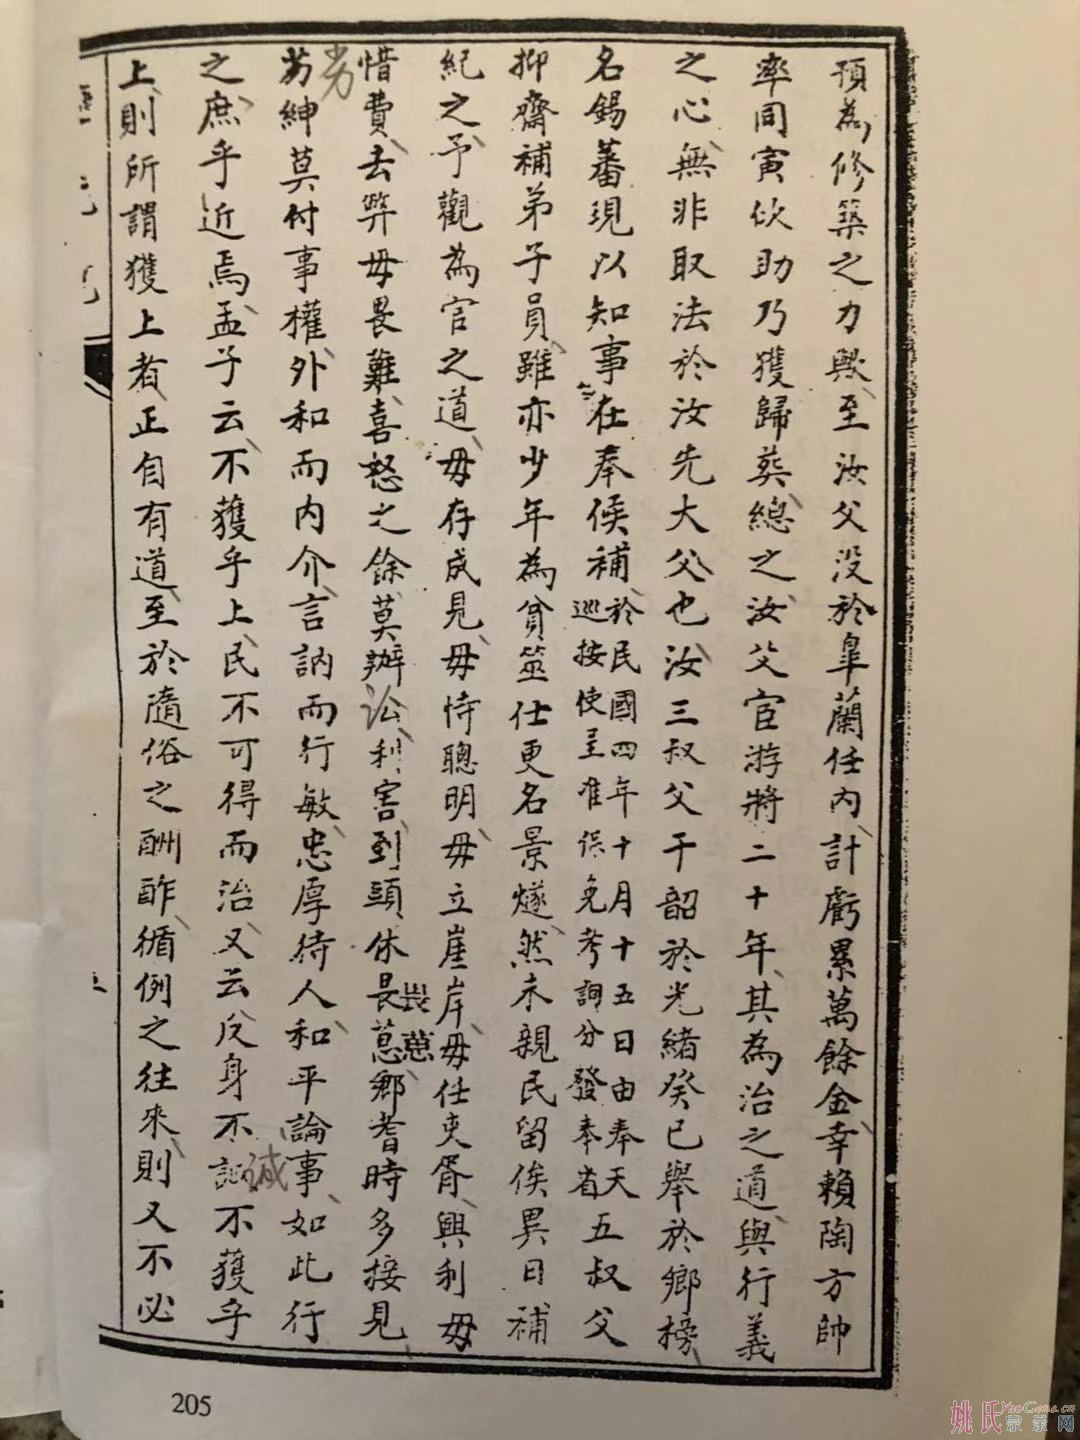 預為修築之力歟至汝父没於皐蘭任内計虧累萬餘金幸賴陶方帥
率同寅佽助乃獲歸葬總之汝父宦游將二十年其為治之道與行義
之心無非取法於汝先大父也汝三叔父干韶於光緒癸巳舉於鄉榜
名錫蕃現以知事在奉候補於民國四年十月十五日由奉天
巡按使呈准保免考詢分發奉省五叔父
抑齋補弟子員雖亦少年為貧筮仕更名景燧然未親民留俟異日補
紀之予觀為官之道毋存成見毋恃聰明毋立崖岸毋任吏胥興利毋
惜費去弊毋畏難喜怒之餘莫辦訟利害到頭休畏葸鄉耆時多接見
畏葸
劣
劣紳莫付事權外和而内介言訥而行敏忠厚待人和平論事如此行
之庶乎近焉孟子云不獲乎上民不可得而治又云反身不誠不獲乎
誠
上則所謂獲上者正自有道至於隨俗之酬酢循例之往來則又不必
205
姚氏宗亲网
YaoGens.cn